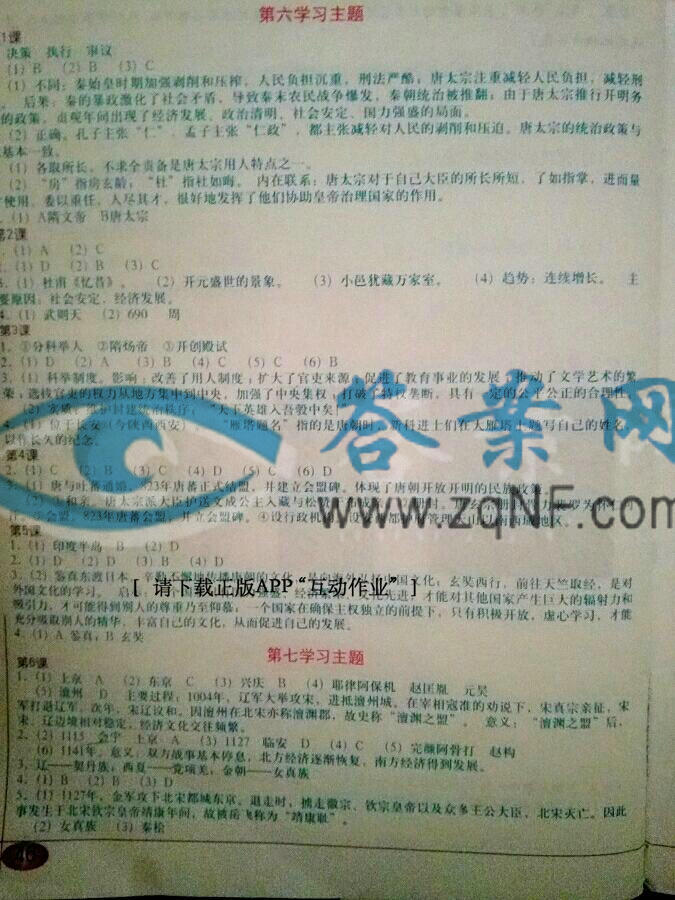 第六学习主题
1课
决策 执行 审议
(1) B (2) B (3) C
(1) 不同：秦始皇时期加强剥削和压榨，人民负担沉重，刑法严酷；唐太宗注重减轻人民负担，减轻刑
后果：秦的暴政激化了社会矛盾，导致秦末农民战争爆发，秦朝统治被推翻；由于唐太宗推行开明务
的政策，贞观年间出现了经济发展、政治清明、社会安定、国力强盛的局面。
(2) 正确。孔子主张“仁”，孟子主张“仁政”，都主张减轻对人民的剥削和压迫。唐太宗的统治政策与
基本一致。
(1) 各取所长，不求全责备是唐太宗用人特点之一。
(2) “房”指房玄龄；“杜”指杜如晦。 内在联系：唐太宗对于自己大臣的所长所短，了如指掌，进而量
使用，委以重任，人尽其才，很好地发挥了他们协助皇帝治理国家的作用。
(1) A隋文帝 B唐太宗
第2课
(1) A (2) C
(1) D (2) B (3) C
(1) 杜甫《忆昔》。 (2) 开元盛世的景象。 (3) 小邑犹藏万家室。 (4) 趋势：连续增长。 主
要原因：社会安定，经济发展。
4. (1) 武则天 (2) 690 周
第3课
1. ①分科举人 ②隋炀帝 ③开创殿试
2. (1) D (2) A (3) B (4) C (5) C (6) B
3. (1) 科举制度。影响：改善了用人制度；扩大了官吏来源；促进了教育事业的发展；推动了文学艺术的繁
荣；选拔官吏的权力从地方集中到中央，加强了中央集权；打破了特权垄断，具有一定的公平公正的合理性。
(2) 实质：维护封建统治秩序；“天下英雄入吾彀中矣”
4. (1) 位于长安（今陕西西安）。 “雁塔题名”指的是唐朝时，新科进士们在大雁塔上题写自己的姓名，
以作长久的纪念。
第4课
2. (1) C (2) B (3) C (4) D (5) C (6) D
3. (1) 唐与吐蕃通婚，823年唐蕃正式结盟，并建立会盟碑。体现了唐朝开放开明的民族政策。
会盟，823年唐蕃会盟，并立会盟碑。④设行政机构
www.zqNF.com
答案网
第5课
1. (1) 印度半岛 B (2) D
2. (1) D (2) D (3) B (4) D
3. (2) 鉴真东渡日本，
文化；玄奘西行，前往天竺取经，是对
[ 请下载正版APP“互动作业” ]
外国文化的学习。
文化先进，才能对其他国家产生巨大的辐射力和
吸引力，才可能得到别人的尊重乃至仰慕；一个国家在确保主权独立的前提下，只有积极开放，虚心学习，才能
充分吸取别人的精华，丰富自己的文化，从而促进自己的发展。
4. (1) A 鉴真；B 玄奘
第七学习主题
第6课
1. (1) 上京 A (2) 东京 C (3) 兴庆 B (4) 耶律阿保机 赵匡胤 元昊
(5) 澶州 D 主要过程：1004年，辽军大举攻宋，进抵澶州城。在宰相寇准的劝说下，宋真宗亲征，宋
军打退辽军。次年，宋辽议和。因澶州在北宋亦称澶渊郡，故史称“澶渊之盟”。 意义：“澶渊之盟”后，
宋、辽边境相对稳定，经济文化交往频繁。
2. (2) 1115 会宁 上京 A (3) 1127 临安 D (4) C (5) 完颜阿骨打 赵构
(6) 1141年。意义：双方战事基本停息，北方经济逐渐恢复，南方经济得到发展。
3. 辽——契丹族；西夏——党项羌；金朝——女真族
4. (1) B (2) B (3) D
5. (1) 1127年，金军攻下北宋都城东京。退走时，掳走徽宗、钦宗皇帝以及众多王公大臣，北宋灭亡。因此
事发生于北宋钦宗皇帝靖康年间，故被岳飞称为“靖康耻”。
(2) 女真族 (3) 秦桧
46